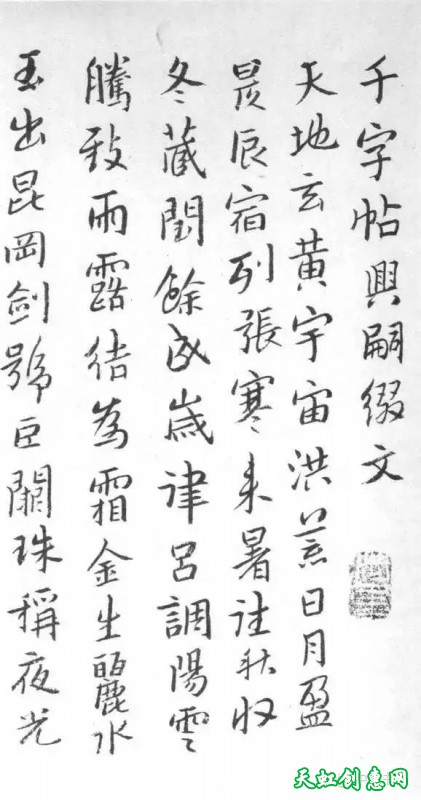 千字帖興嗣缀文
天地玄黄宇宙洪荒日月盈
昃辰宿列張寒来暑往秋收
冬藏閏餘成歲律吕調陽雲
騰致雨露结為霜金生麗水
玉出昆岡劍號巨闕珠稱夜光
天虹创意网